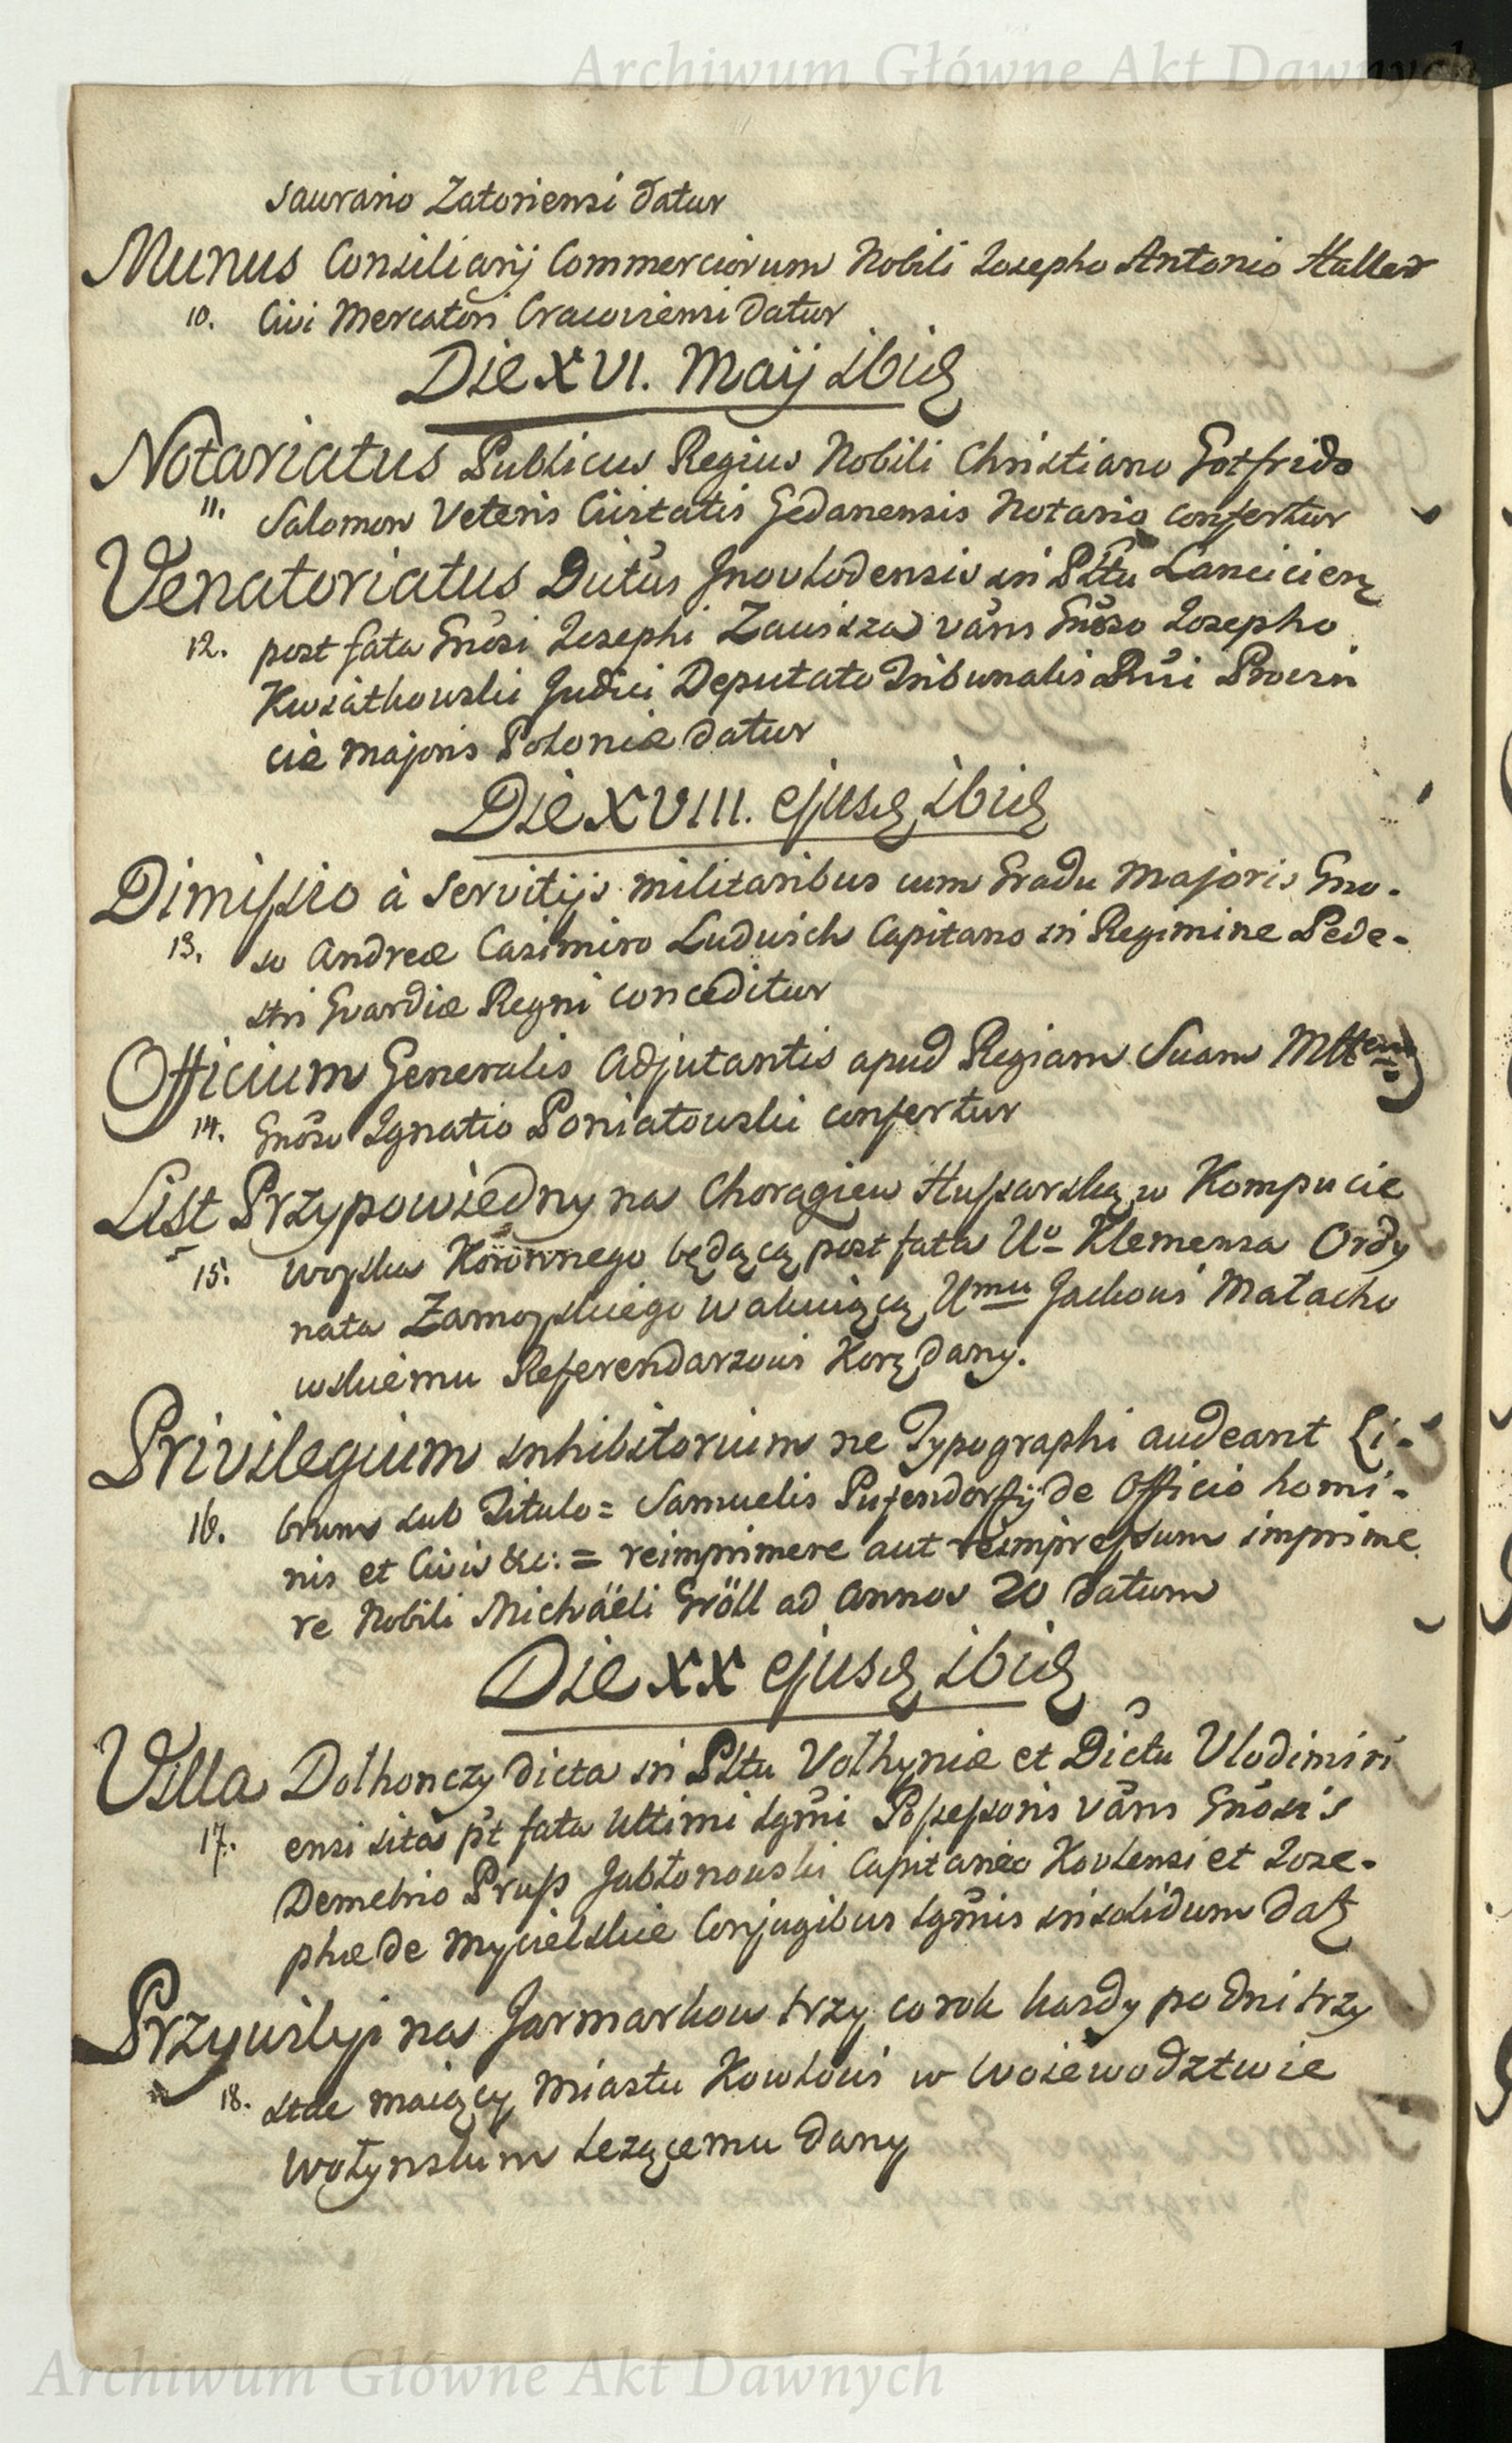 Archiwum Główne Akt Dawnych
saurario Zatoriensi datur
Munus Consiliarij Commerciorum Nobili Josepho Antonio Haller
10. Civi Mercatori Cracoviensi datur
Die XVI. Maij ibid
Notariatus Publicus Regius Nobili Christiano Gotfrido
11. Salomon Veteris Civitatis Gedanensis Notario confertur
Venatoriatus Dictus Jnovlodensis in Pltu Lancicien
12. post fata Gnosi Josephi Zawisza vans Gnoso Josepho
Kwiatkowski Judici Deputato Tribunalis Rni Provin
cie Majoris Poloniæ datur
Die XVIII. ejusd ibid
Dimissio à servitijs militaribus cum Gradu Majoris Gno-
13. so Andreæ Casimiro Ludwich Capitano in Regimine Pede-
stri Gvardiæ Regni conceditur
Officium Generalis Adjutantis apud Regiam Suam Mttem
14. Gnoso Ignatio Poniatowski confertur
List Przypowiedny na Choragiew Hussarską w Kompucie
15. woyska Koronnego będącą post fata Uo Klemensa Ordy
nata Zamoyskiego wakuiącą Umu Jackowi Małacho
wskiemu Referendarzowi Kor dany.
Privilegium inhibitorium ne Typographi audeant Li-
16. brum sub Titulo = Samuelis Pufendorffij de Officio homi-
nis et Civis &c: = reimprimere aut reimpressum imprime
re Nobili Michaëli Gröll ad Annos 20 datum
Die XX ejusd ibid
Villa Dołhonczy dicta in Pltu Vołhyniæ et Dictu Vlodimiri
17. ensi sita pt fata ultimi lgmi Possessoris vans Gnosis
Demetrio Pruss Jabłonowski Capitaneo Kovlensi et Jose-
phæ de Mycielskie Conjugibus lgmis insolidum dat
Przywiley na Jarmarkow trzy co rok kazdy po dni trzy
18. stae maiący Miastu Kowlowi w Woiewodztwie
Wołynskim lezącemu dany
Archiwum Główne Akt Dawnych